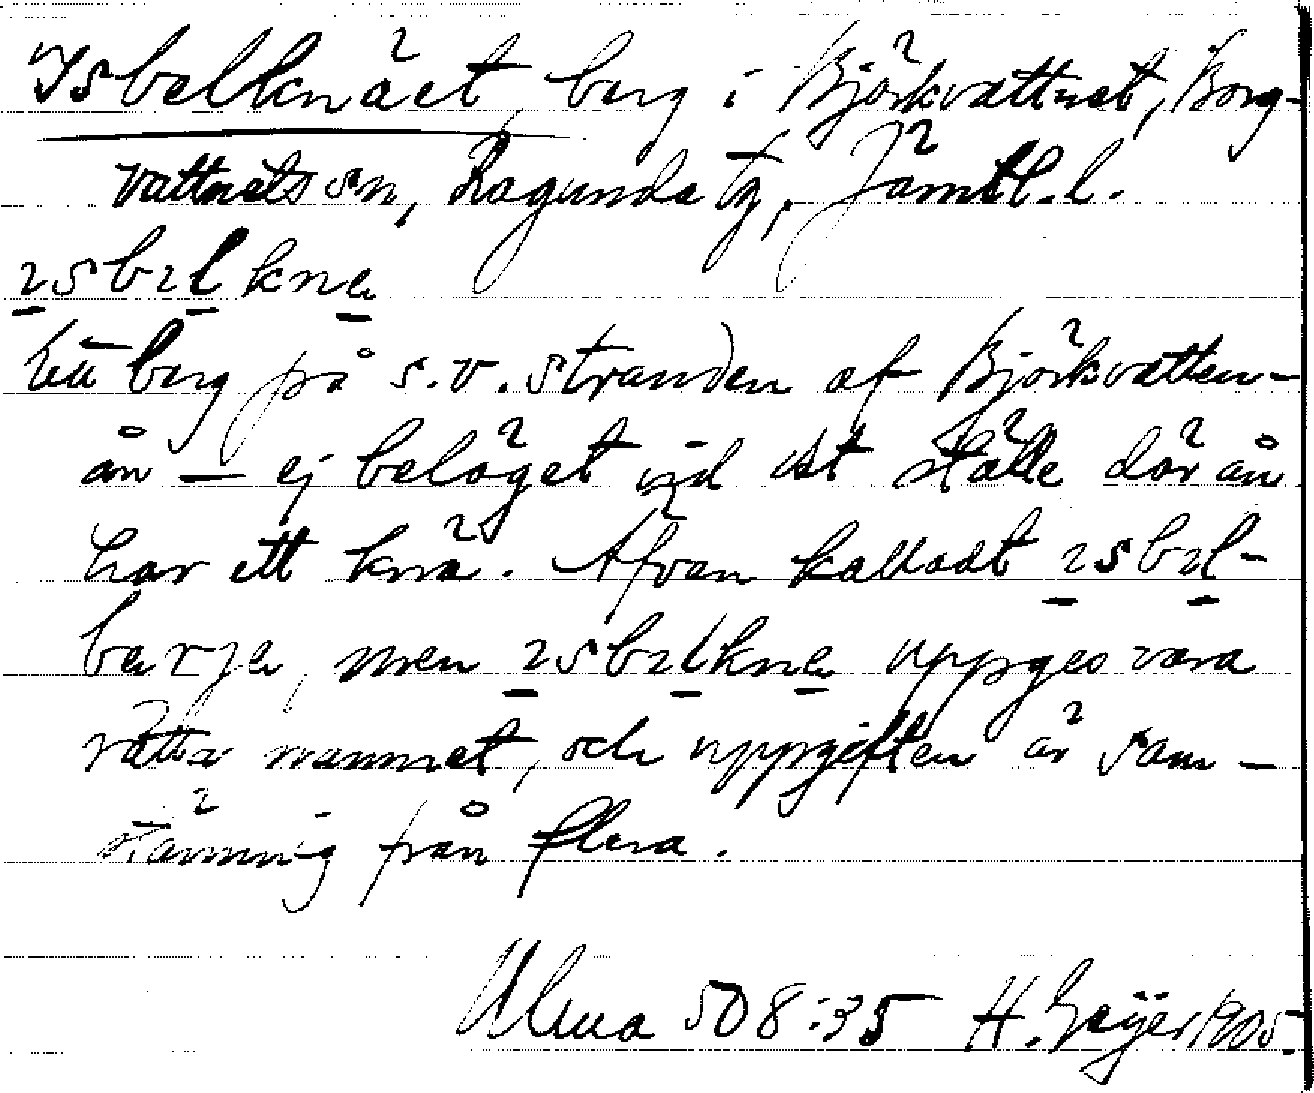 Isbelknäet, berg i Björkvattnet, Borg-
vattnets sn, Ragunda tg, Jämtl. l.
ısbılkna
Ett berg på s.v. stranden af Björkvatten-
ån – ej beläget vid ett ställe där ån
har ett knä. Äfven kalladt ısbıl-
barja, men ısbılkna uppges vara
rätta namnet, och uppgiften är sam-
stämmig från flera.
Ulma 508:35 H. Geijer 1905.